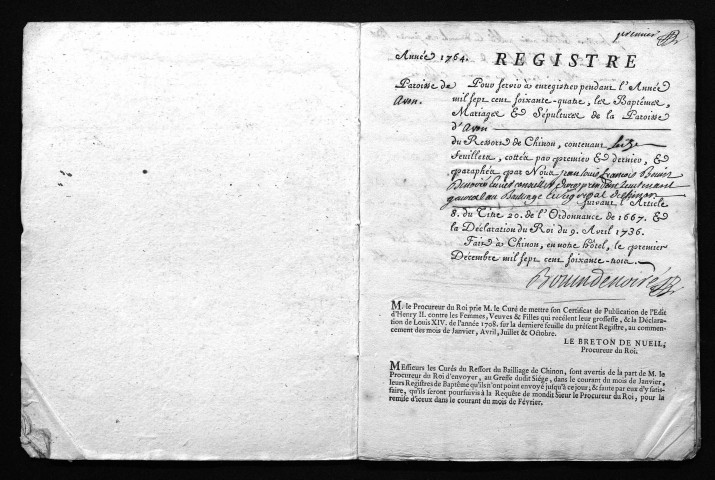 premier
Année 1764. REGISTRE
Paroisse de
Avon.
Pour servir à enregistrer pendant l'Année
mil sept cent soixante-quatre, les Baptêmes,
Mariages & Sépultures de la Paroisse
d'Avon
du Ressort de Chinon, contenant seize
feuillets, cottés par premier & dernier, &
paraphés par Nous Jean Louis François Bouin
De noiré conseiller du roy president Lieutenant
general au Baillage de Chinon
suivant l'Article
8. du Titre 20. de l'Ordonnance de 1667. &
la Déclaration du Roi du 9. Avril 1736.
Fait à Chinon, en notre hôtel, le premier
Décembre mil sept cent soixante-trois.
Bouindenoiré
M. le Procureur du Roi prie M. le Curé de mettre son Certificat de Publication de l'Edit
d'Henry II. contre les Femmes, Veuves & Filles qui recélent leur grossesse, & la Déclara-
tion de Louis XIV. de l'année 1708. sur la derniere feuille du présent Registre, au commen-
cement des mois de Janvier, Avril, Juillet & Octobre.
LE BRETON DE NUEIL,
Procureur du Roi.
MEssieurs les Curés du Ressort du Bailliage de Chinon, sont avertis de la part de M. le
Procureur du Roi d'envoyer, au Greffe dudit Siége, dans le courant du mois de Janvier,
leurs Registres de Baptême qu'ils n'ont point envoyé jusqu'à ce jour; & faute par eux d'y satis-
faire, qu'ils seront poursuivis à la Requête de mondit Sieur le Procureur du Roi, pour la
remise d'iceux dans le courant du mois de Février.